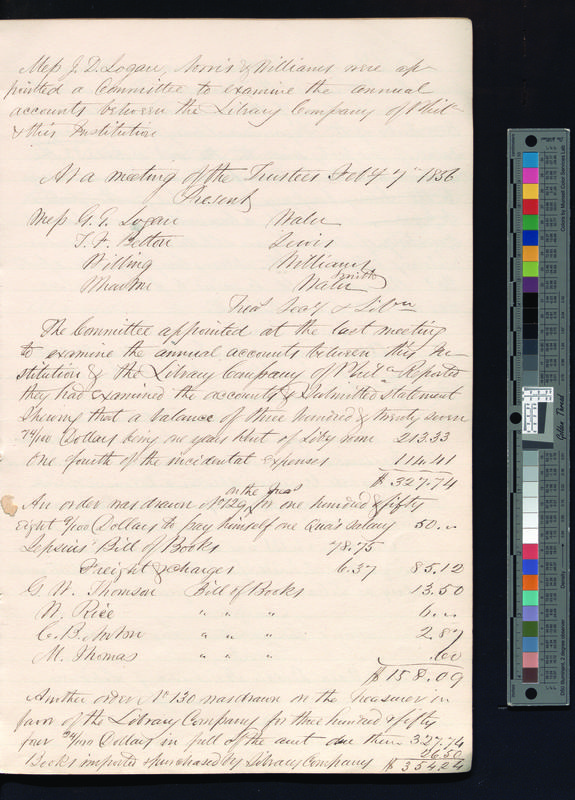 Mess J. D. Logan, Norris & Williams were ap
pointed a Committee to examine the annual
accounts between the Library Company of Phila
& this Institution
At a meeting of the Trustees Feby 4 1856
Present
Mess G. G. Logan
T. F. Betton Lewis
Willing Williams
Smith
Treas Secy & Libn
The Committee appointed at the last meeting
to examine the annual accounts between this In-
stitution & the Library Company of Phila Reported
they had examined the accounts & submitted a statement
showing that a balance of three hundred & twenty seven
74/100 Dollars being one years Rent of Liby room 213.33
One fourth of the incidental expenses 114.41
$ 327.74
on the Treas
An order was drawn No 129 for one hundred & fifty
eight 9/100 Dollars to pay himself one Quars Salary 50. „
Lepsius' Bill of Books 78.75
Freight & charges 6.37 85.12
G. W. Thomson Bill of Books 13.50
N. Rice „ „ „ 6. „
C. B. Norton „ „ „ 2.87
M. Thomas „ „ „ .60
$ 158.09
Another order No 130 was drawn on the Treasurer in
favor of the Library Company for three hundred & fifty
four 24/100 Dollars in full of the amt due them 327.74
26.50
Books imported & purchased by Library Company $ 354.24